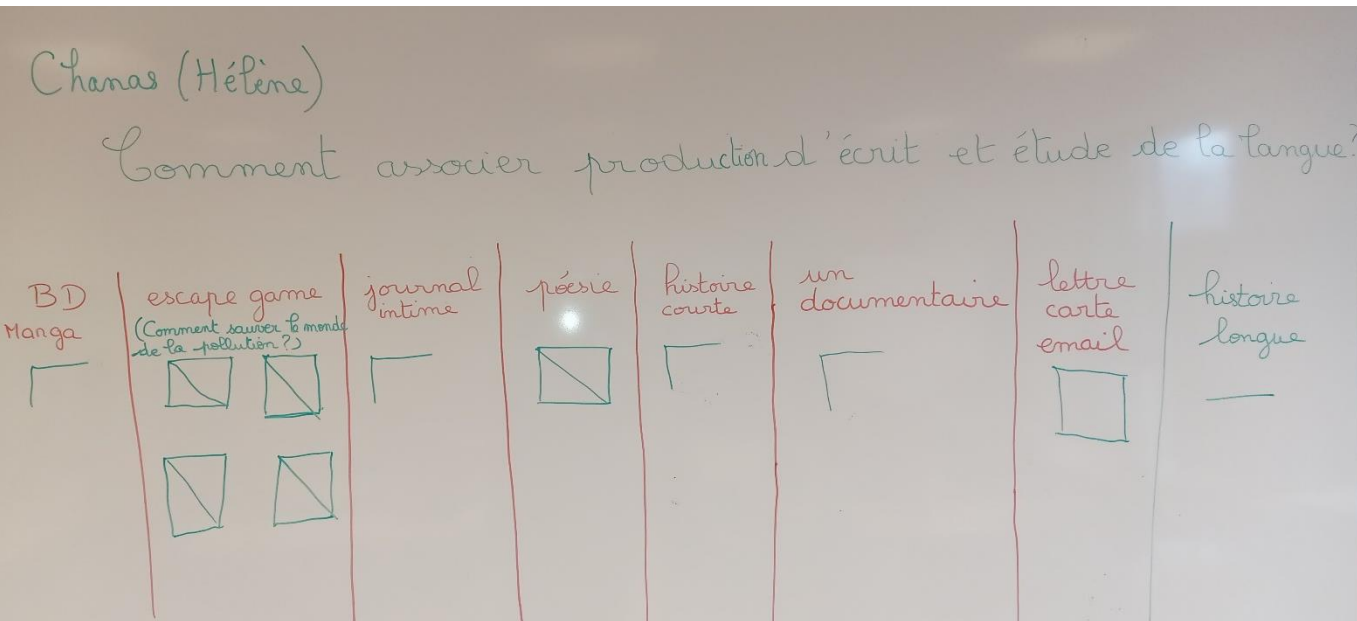 Chanas (Hélène)
Comment associer production d'écrit et étude de la langue?
BD
Manga
escape game
(Comment sauver le monde
de la pollution?)
journal
intime
poésie
histoire
courte
un
documentaire
lettre
carte
email
histoire
longue